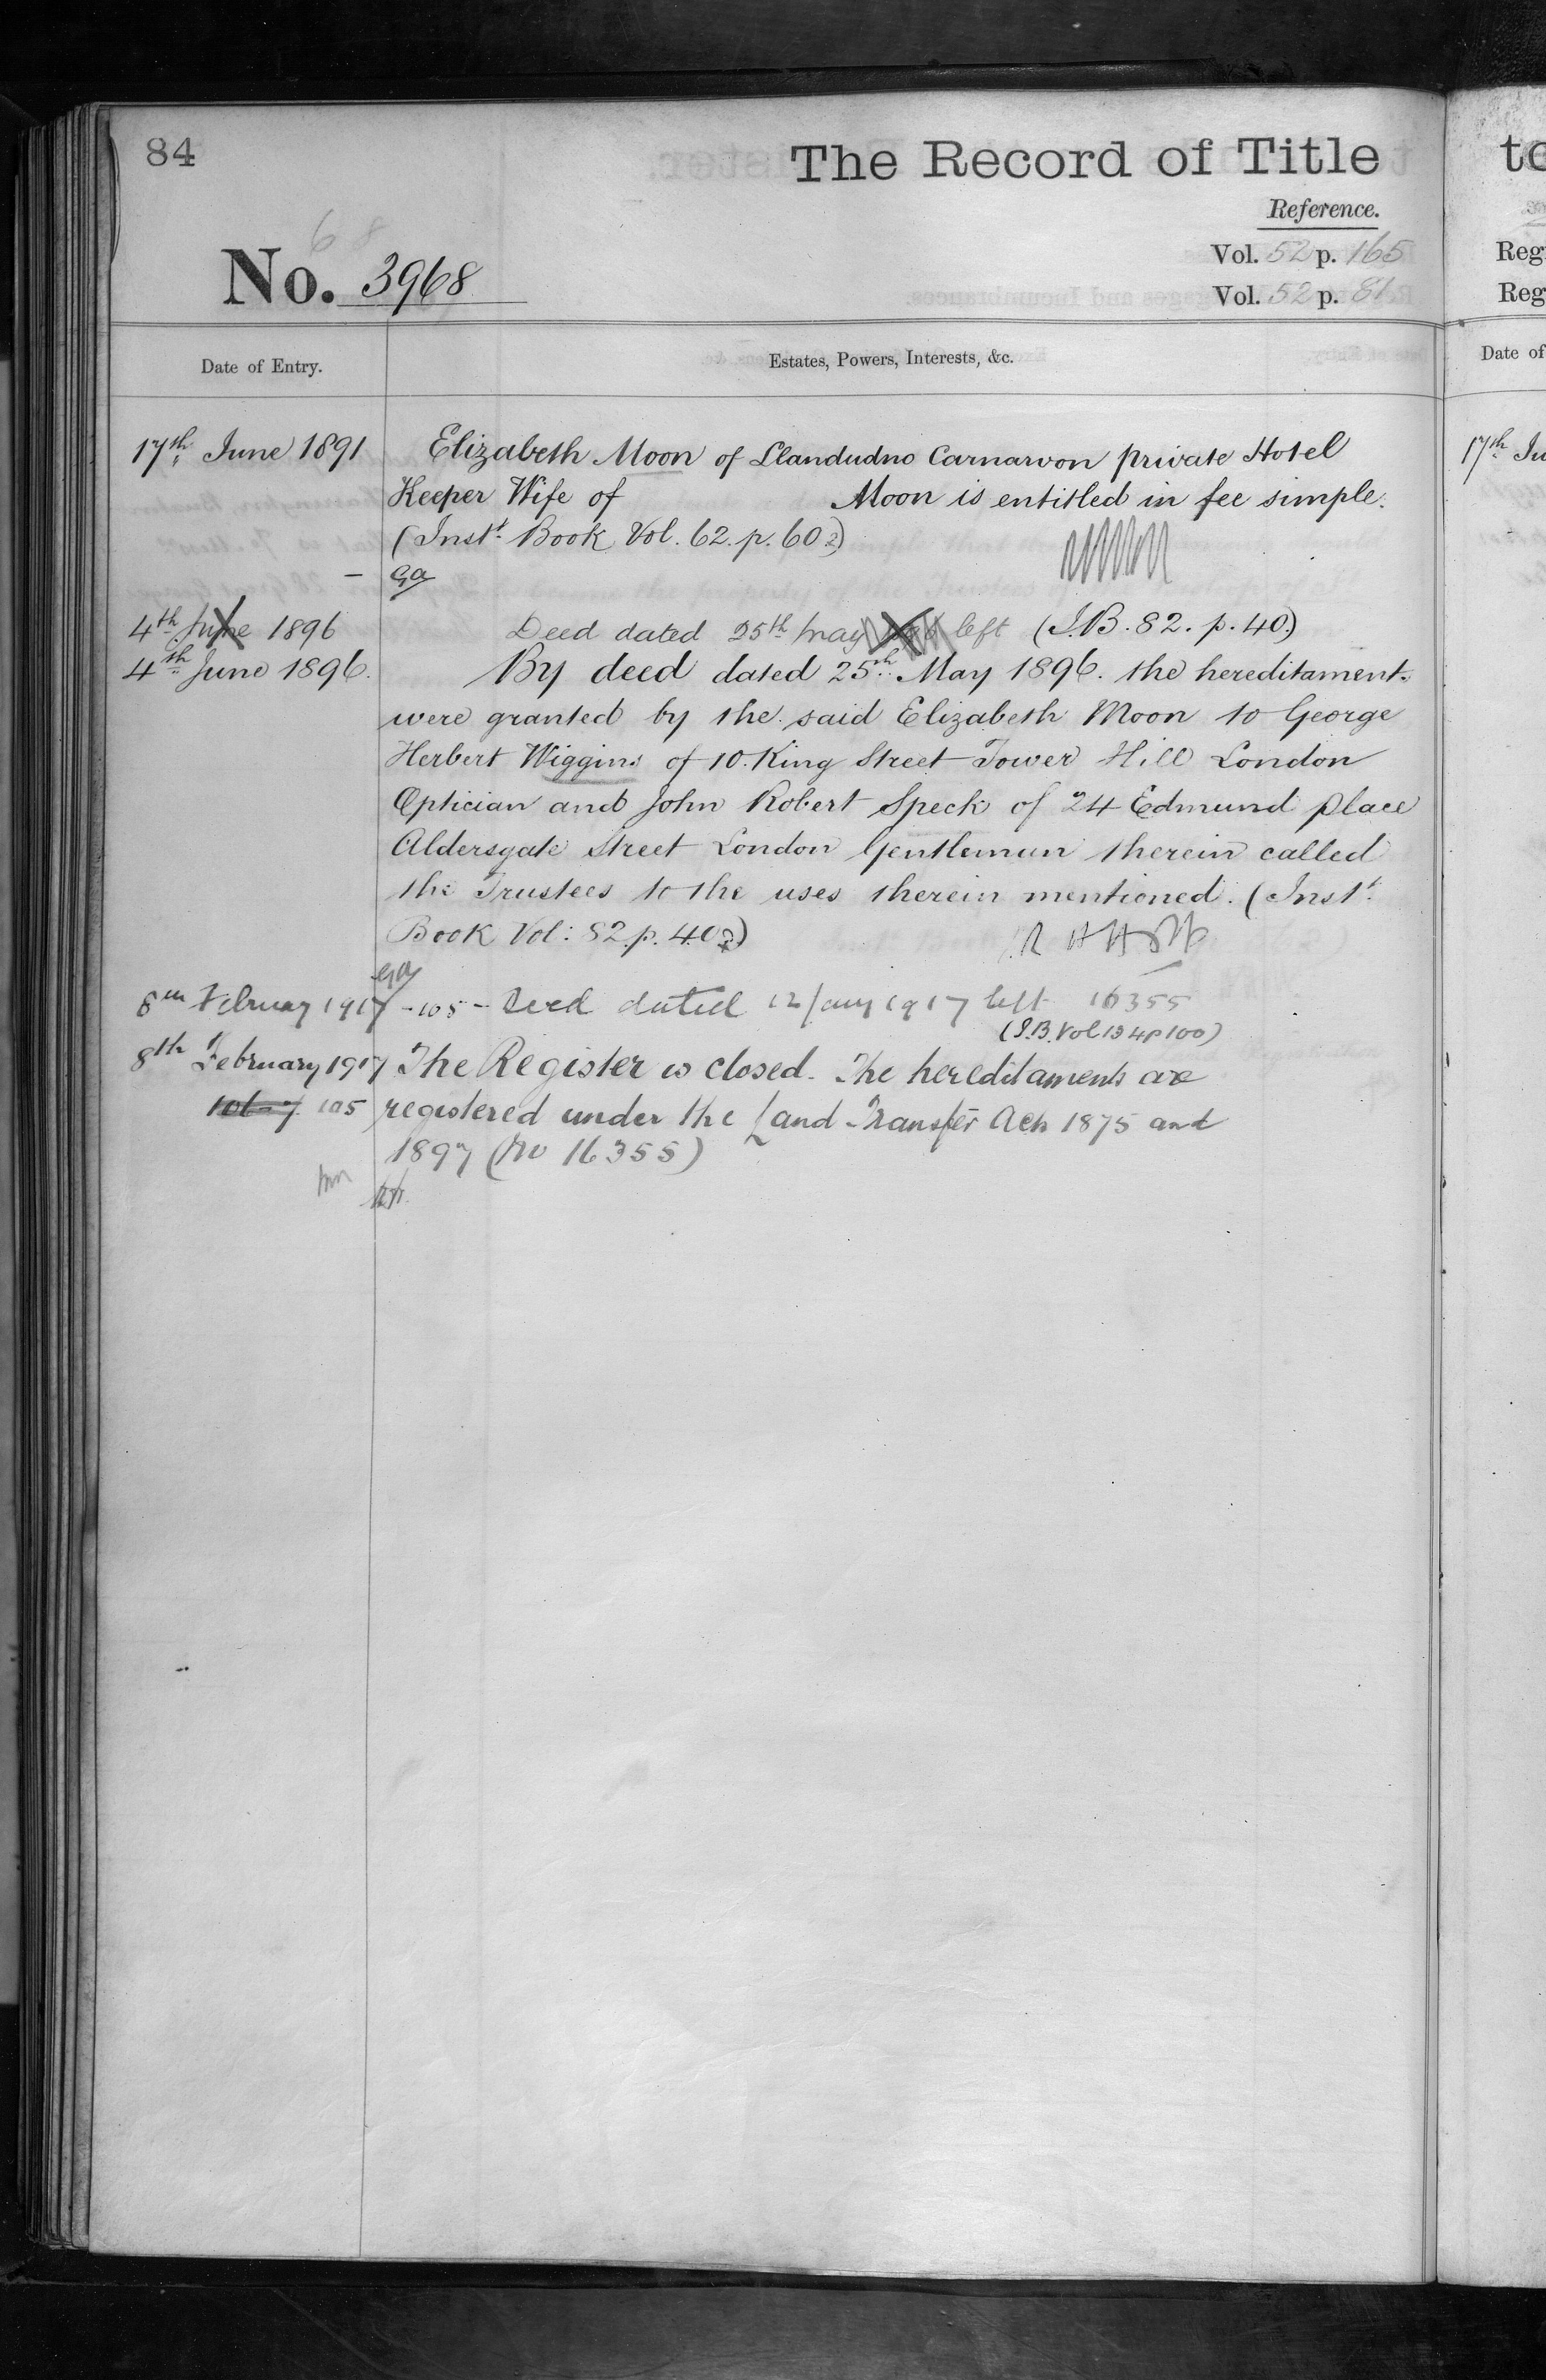 84
The Record of Title
Reference.
Vol. 52 p. 165
68
No. 3968
Vol. 52 p. 81
Date of Entry.
Estates, Powers, Interests, &c.
17th June 1891
Elizabeth Moon of Llandudno Carnarvon private Hotel
Keeper Wife of Moon is entitled in fee simple.
(Inst. Book Vol. 62. p. 60.)
4th June 1896
Deed dated 25th May left (I.B. 82. p. 40.)
4th June 1896.
By deed dated 25th May 1896. the hereditaments
were granted by the said Elizabeth Moon to George
Herbert Wiggins of 10. King Street Tower Hill London
Optician and John Robert Speck of 24 Edmund place
Aldersgate Street London Gentleman therein called
the Trustees to the uses therein mentioned. (Inst.
Book Vol: 82. p. 40.)
8th February 1917 - 105 - Deed dated 12 Jany 1917 left 16355
(I.B. Vol 134 p 100)
8th February 1917 The Register is closed. The hereditaments are
105 registered under the Land Transfer Acts 1875 and
1897 (No 16355)
to
Reg
Reg
Date of
17th Ju